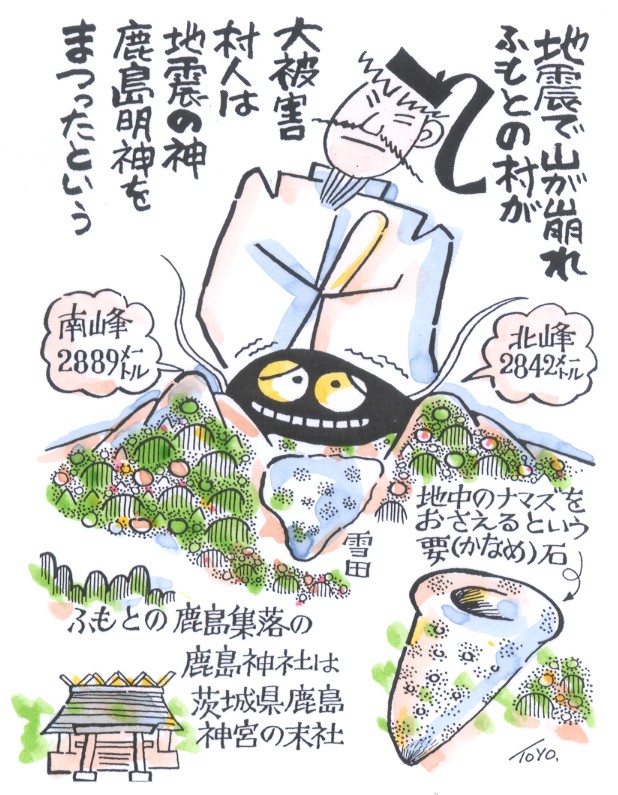 地震で山が崩れ
ふもとの村が
大被害
村人は
地震の神
鹿島明神を
まつったという
南峰
2889メートル
北峰
2842メートル
地中のナマズを
おさえるという
要(かなめ)石
雪田
ふもとの鹿島集落の
鹿島神社は
茨城県鹿島
神宮の末社
TOYO.